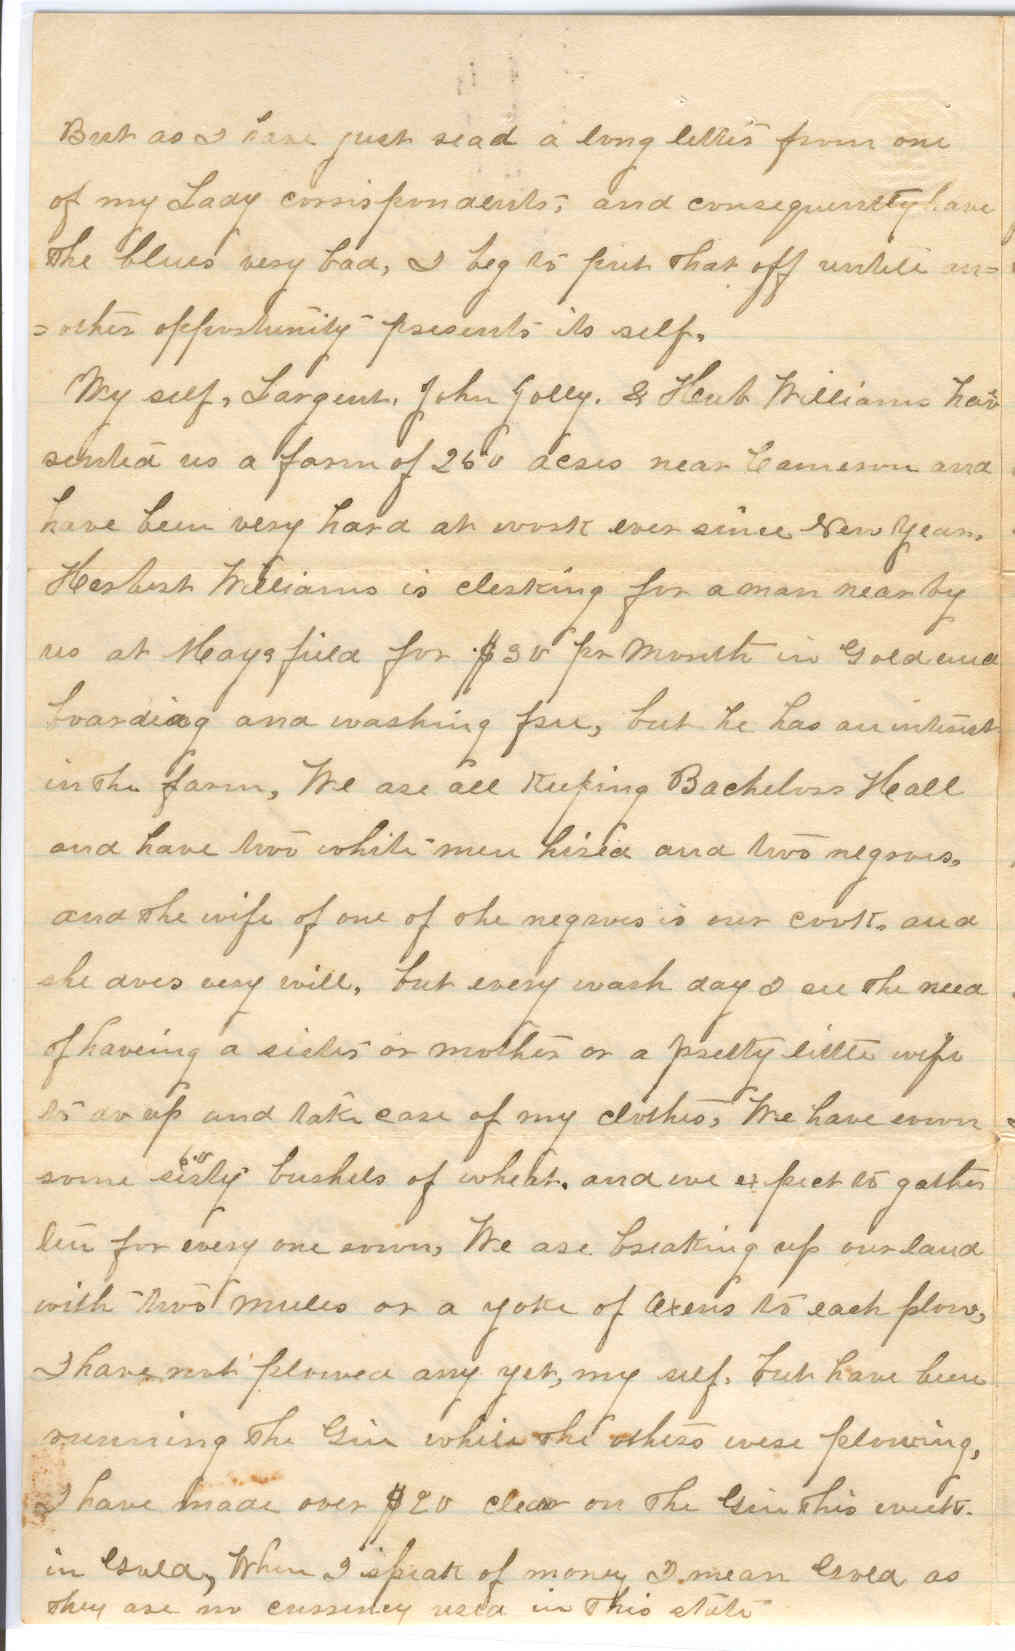 But as I have just read a long letter from one
of my Lady correspondents, and consequently have
the blues very bad, I beg to put that off untill an=
=other opportunity presents its self.
My self, Largent, John Golly, & Herb Williams have
rented us a farm of 250 acres near Cameron and
have been very hard at work ever since New Year.
Herbert Williams is clerking for a man near by
us at Maysfield for $30 pr Month in Gold and
boarding and washing free, but he has an interest
in the farm, We are all Keeping Bachelors Hall
and have two white men hired and two negroes.
and the wife of one of the negroes is our cook. and
she does very well, but every wash day I see the need
of haveing a sister or mother or a pretty little wife
to do up and take care of my clothes, We have sown
some bushels of wheat. and we expect to gather
ten for every one sown, We are breaking up our land
with two mules or a yoke of Oxens to each plow,
I have not plowed any yet, my self. but have been
running the Gin while the others were plowing,
I have made over $20 clear on the Gin this week.
in Gold, When I speak of money I mean Gold as
they are no currency used in this state